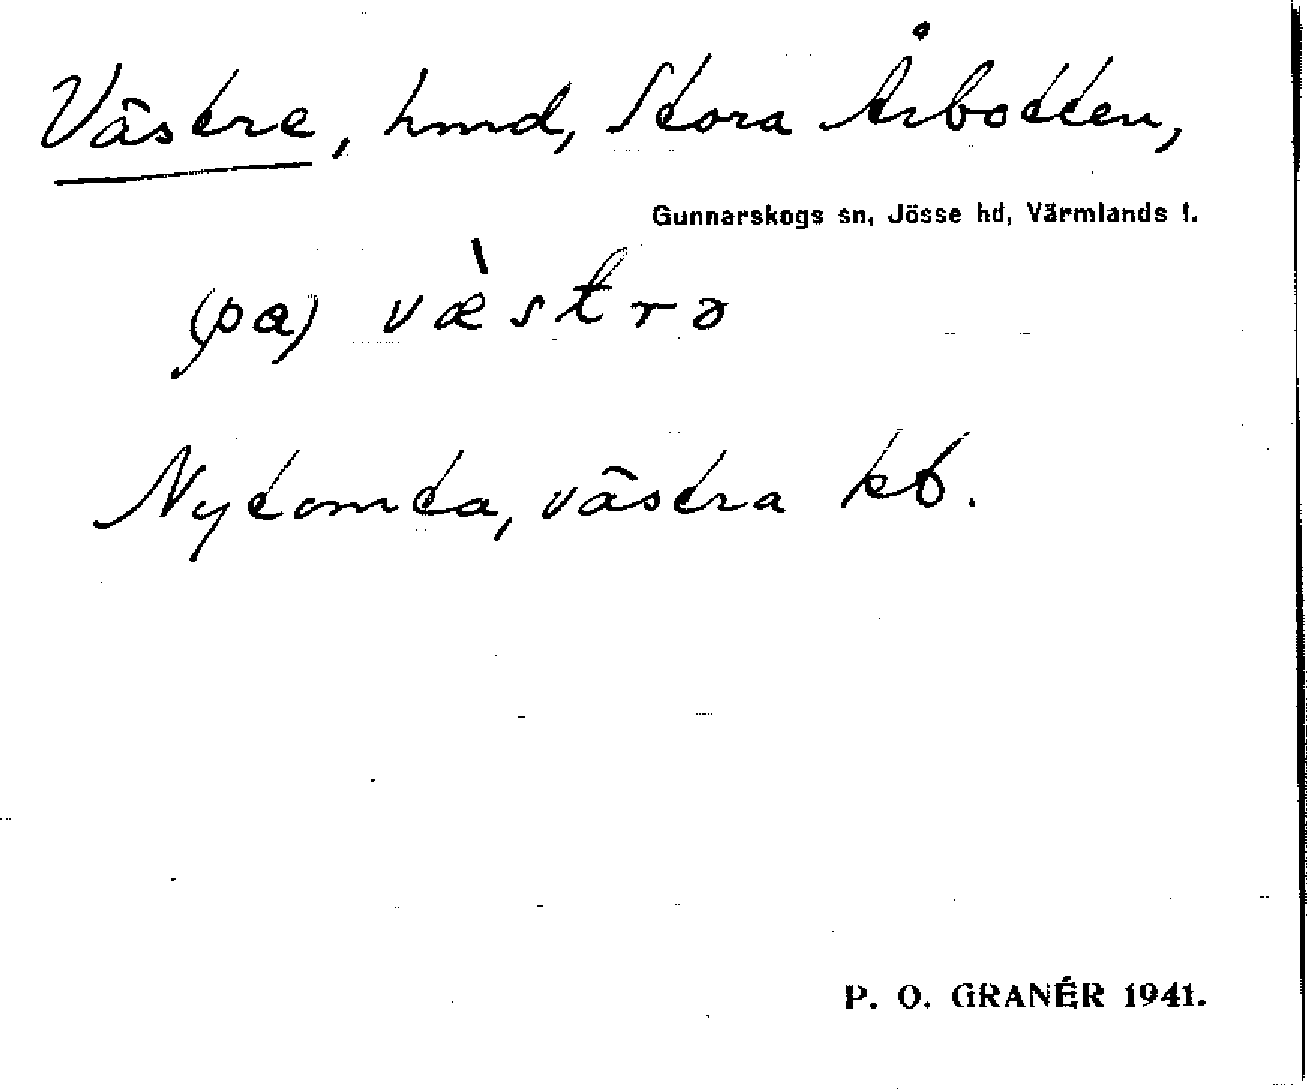 Västre, hmd, Stora Årbotten,
Gunnarskogs sn, Jösse hd, Värmlands l.
(pa) væ̀strə
Nytomta, västra kb.
P. O. GRANÉR 1941.